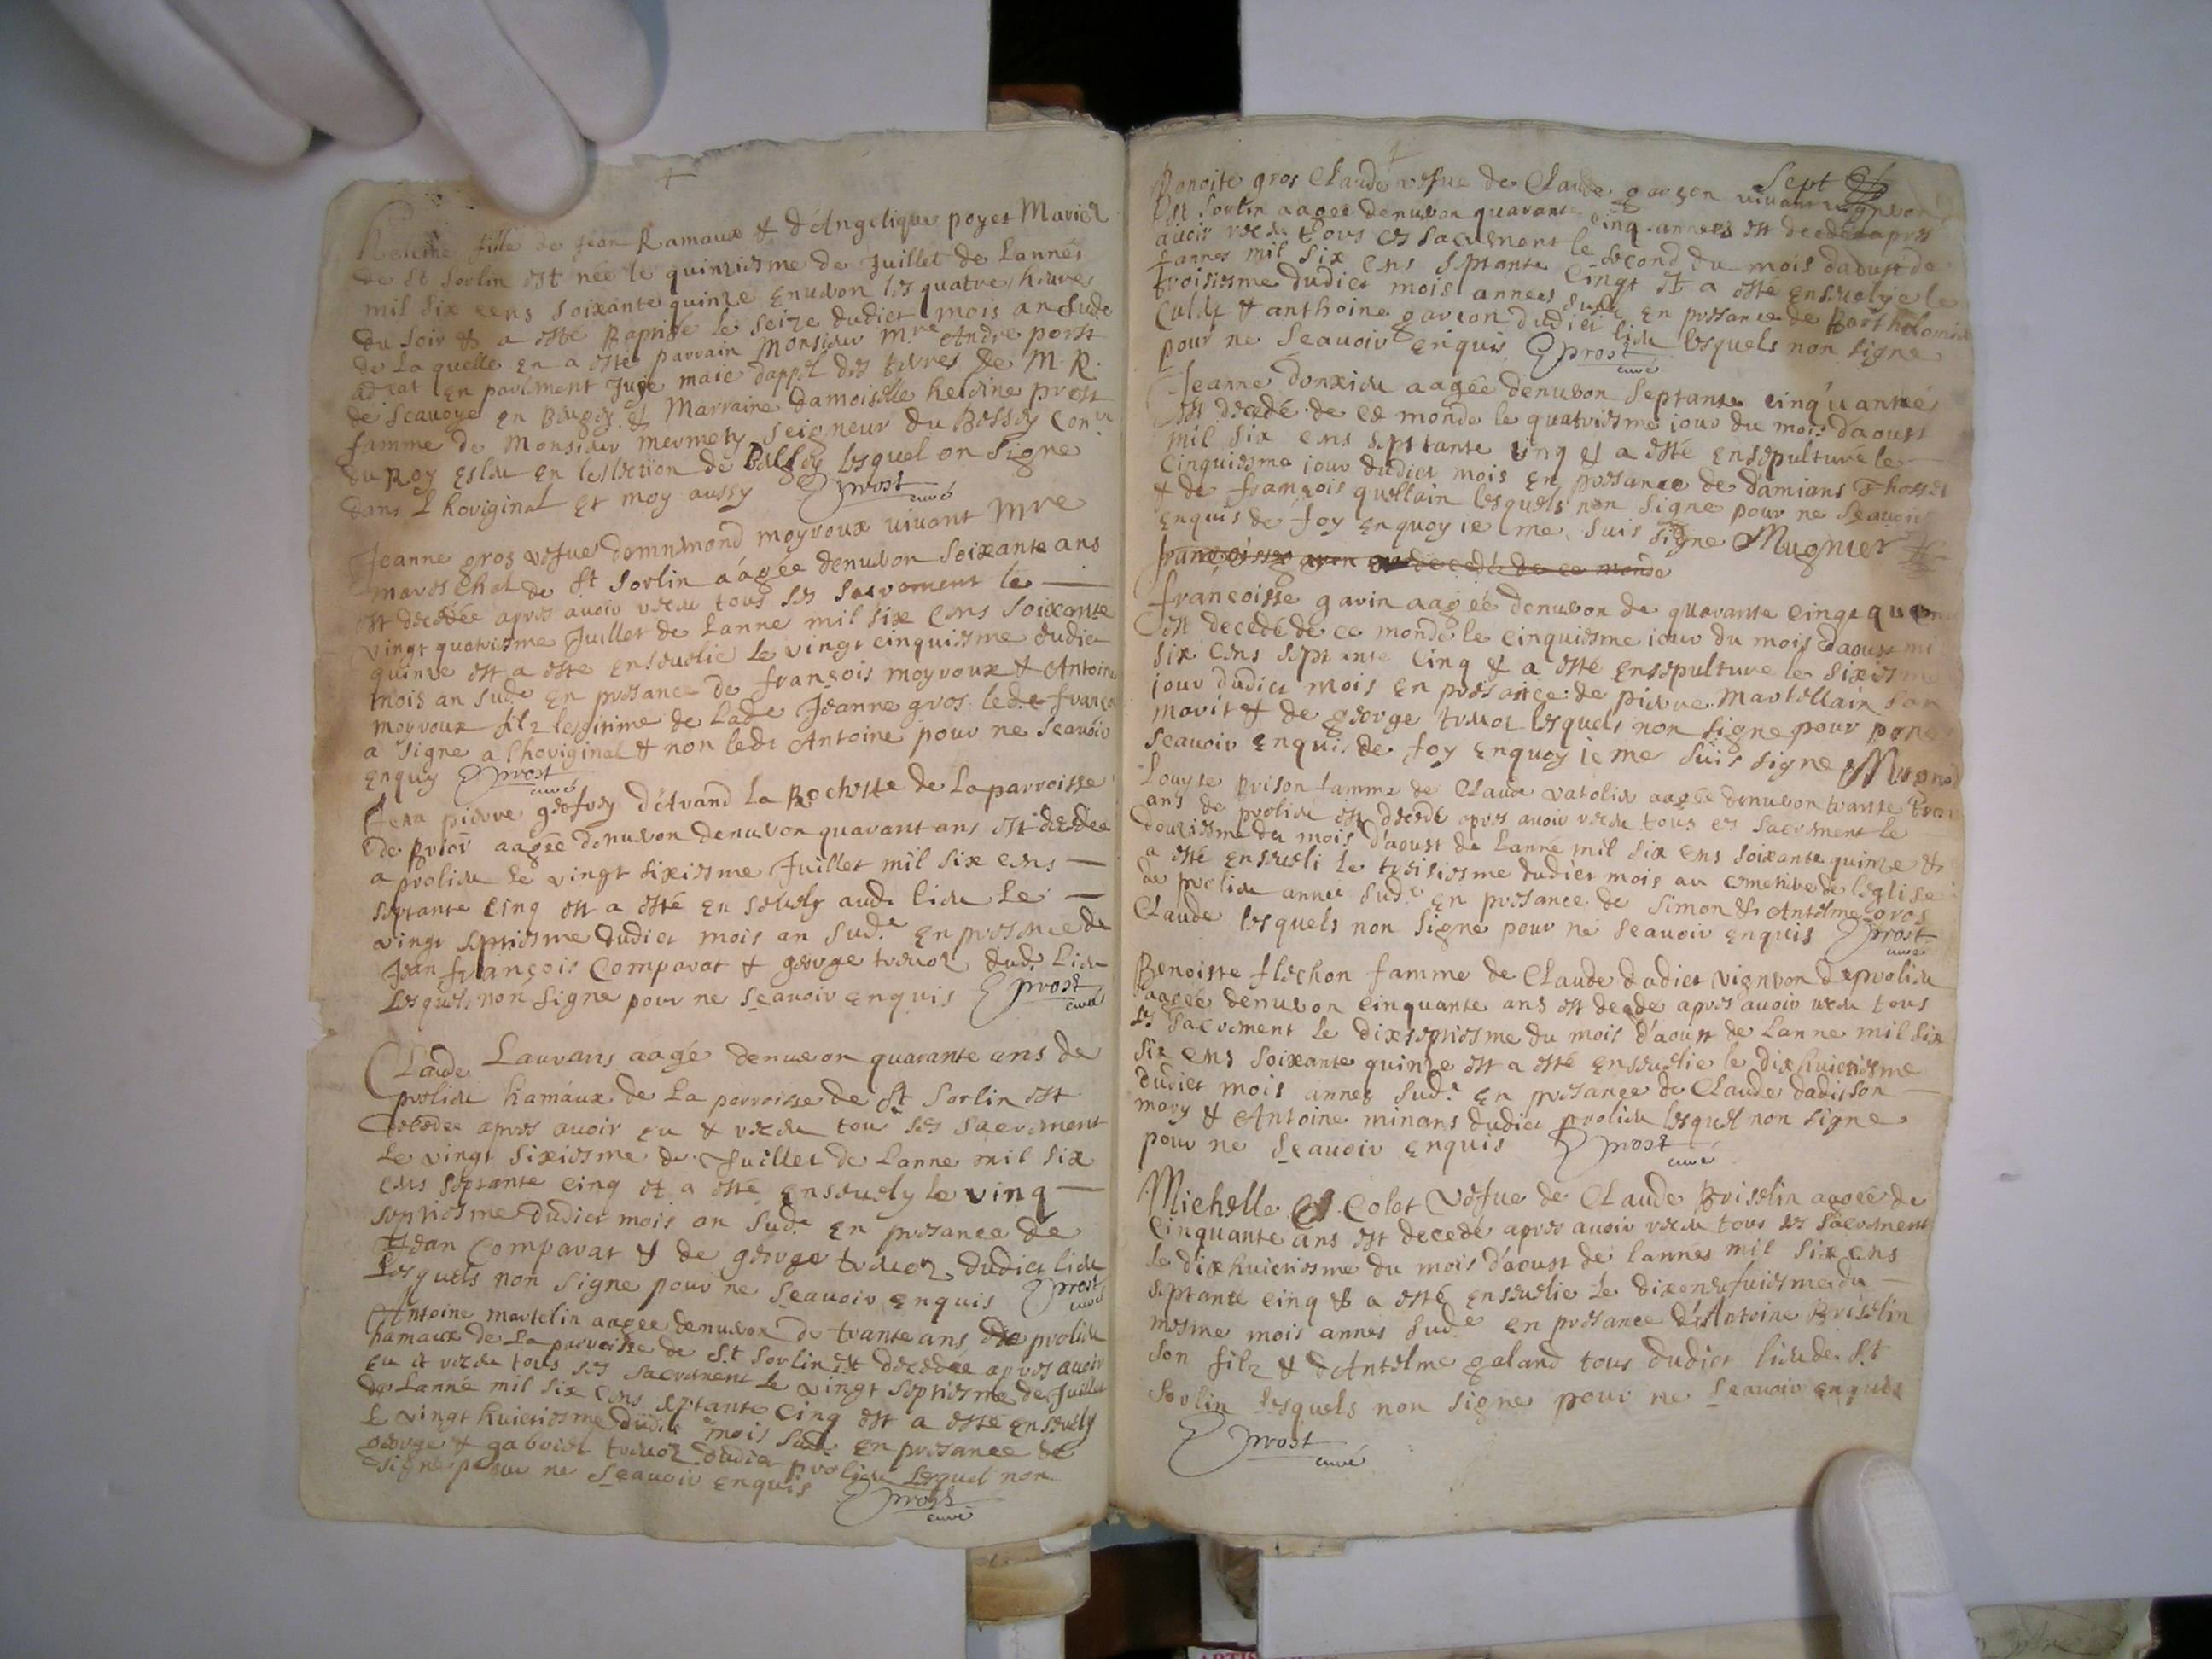 fille de Jean Ramaux & d'Angelique poyet Mariez
de St Sorlin est née le quinziesme de Juillet de Lannés
mil six cens soixante quinze enuiron les quatre heures
du soir & a esté Baptisé le seize dudict mois an sude
de Laquelle en a estes parrain Monsieur Mre Andre porst
en parlment Juge maie dappel des terres de M. R.
de Scauoye en Bugey & Marraine damoiselle heleine prost
famme de Monsieur mermety Seigneur du Bessey Conr
du Roy esleu en leslection de lesquel on signe
dans Lhoriginal et moy aussy prost curé
Jeanne gros vefue moyroux viuant mre
mareschal de St Sorlin aágée denuiron soixante ans
est decedée apres auoir receu tous ses sacrement le
vingt quatriesme Juillet de Lanne mil six cens soixante
quinze est a esté enseuelie le vingt cinquiesme dudict
mois an sude en presance de françois moyroux & Antoine
moyroux filz legitime de Lade Jeanne gros led. franço
a signe a lhoriginal & non ledt Antoine pour ne scauoir
enquy prost curé
pierre geofrey La Rochette de La parroisse
de prior aagée denuiron denuiron quarant ans est decedee
a prolieu le vingt sixiesme Juillet mil six cens
septante cinq est a esté en seuely aud. lieu le
vingt septiesme dudict mois an sud.e en presance de
Jean françois Comparat & george treuoz dud. Lieu
Lesquels non signe pour ne scauoir enquis prost curé
Claude Laurans aagé denuiron quarante ans de
prolieu hamaux de La parroisse de St Sorlin est
decedee apres auoir eu & receu tou ses sacrement
Le vingt sixiesme de Juillet de Lanne mil six
cens septante cinq & a esté enseuely le ving
septiesme dudict mois an sude en presance de
Jean Comparat & de george treuoz dudict lieu
Lesquels non signe pour ne scauoir enquis prost curé
Antoine martelin aagee denuiron de trante ans de prolieu
hamaux de La parroisse de S.t Sorlin est decedee apres auoir
eu & receu tous ses sacrement Le vingt septiesme de Juillet
de Lanné mil six cens septante cinq est a esté enseuely
Le vingt huictiesme dudict mois sude en presance de
george & gabriel treuoz dudict prolieu Lesquel non
signe pour ne scauoir enquis prost curé
Sept
Benoite gros Claude vefue de Claude garson viuant vigneron
St Sorlin aagee denuiron quarante cinq annees est decedé apres
auoir receu tous ces sacrement le second du mois daoust de
Lannes mil six cens septante cingt & a esté enseuelye le
troisiesme dudict mois annees sude en presance de Bartholomie
& anthoine garçon dudict lieu lesquels non signe
pour ne scauoir enquis prost curé
Jeanne donxieu aagée denuiron septante cinq annés
est decedé de ce monde le quatriesme iour du mois daoust
mil six cens septtante cinq & a esté ensepulturé le
cinquiesme iour dudict mois en presance de damians Thosset
& de françois quellain lesquels non signe pour ne scauoir
enquis de foy en quoy ie me suis signe Mugnier
françoisse decedé de ce monde
françoisse garin aagée denuiron de quarante cinge
est decedé de ce monde le cinquiesme iour du mois daoust mi
six cens septante cinq & a esté ensepulture le sixiesme
iour dudict mois en presance de pierre Martellain son
marit & de george treuoz lesquels non signe pour
scauoir enquis de foy enquoy ie me suis signe
Louyse brison famme de Claude vatolieu aagée denuiron trante
ans de prolieu est decedé apres auoir receu tous ces sacrement le
douziesme du mois d'aoust de Lanné mil six cens soixante quinze &
a esté enseueli Le treisiesme dudict mois au cemetiere de léglise
de prolieu annee sud.e en presance de Simon & Antelme gros
Claude lesquels non signe pour ne scauoir enquis prost curé
Benoiste flechon famme de Claude dadict vigneron de prolieu
aagée denuiron cinquante ans est decede apres auoir receu tous
ses sacrement le dixseptiesme du mois d'aoust de Lanne mil six
six cens soixante quinze est a esté enseuelie le dixhuictiesme
dudict mois annee sud.e en presance de Claude dadict son
mary & Antoine minans dudict prolieu lesquel non signe
pour ne scauoir enquis prost curé
Michelle Colot vefue de Claude Briselin aagée de
cinquante ans est decedé apres auoir receu tous ses sacrement
le dixhuictiesme du mois d'aoust de lannés mil six cens
septante cinq & a esté enseuelie Le dixneufuiesme du
mesme mois annes sud.e en presance d'Antoine Briselin
son filz & dAntelme galand tous dudict lieu de S.t
Sorlin Lesquels non signe pour ne scauoir enquis
prost curé